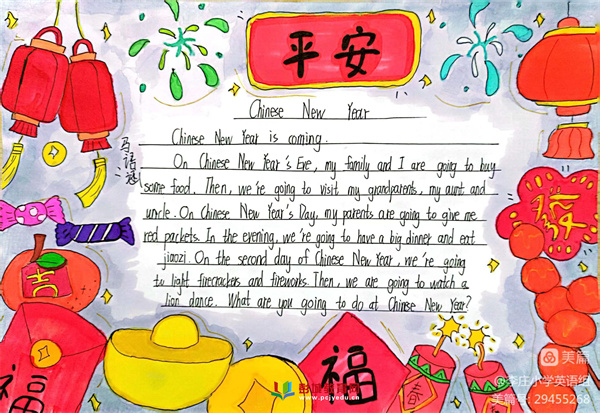 平安
Chinese New Year
Chinese New Year is coming.
On Chinese New Year's Eve, my family and I are going to buy
some food. Then, we're going to visit my grandparents, my aunt and
uncle. On Chinese New Year's Day, my parents are going to give me
red packets. In the evening, we're going to have a big dinner and eat
jiaozi. On the second day of Chinese New Year, we're going
to light firecrackers and fireworks. Then, we are going to watch a
lion dance. What are you going to do at Chinese New Year?
福
福
春
www.pcjyedu.cn
美篇
@李庄小学英语组
美篇号: 29455268